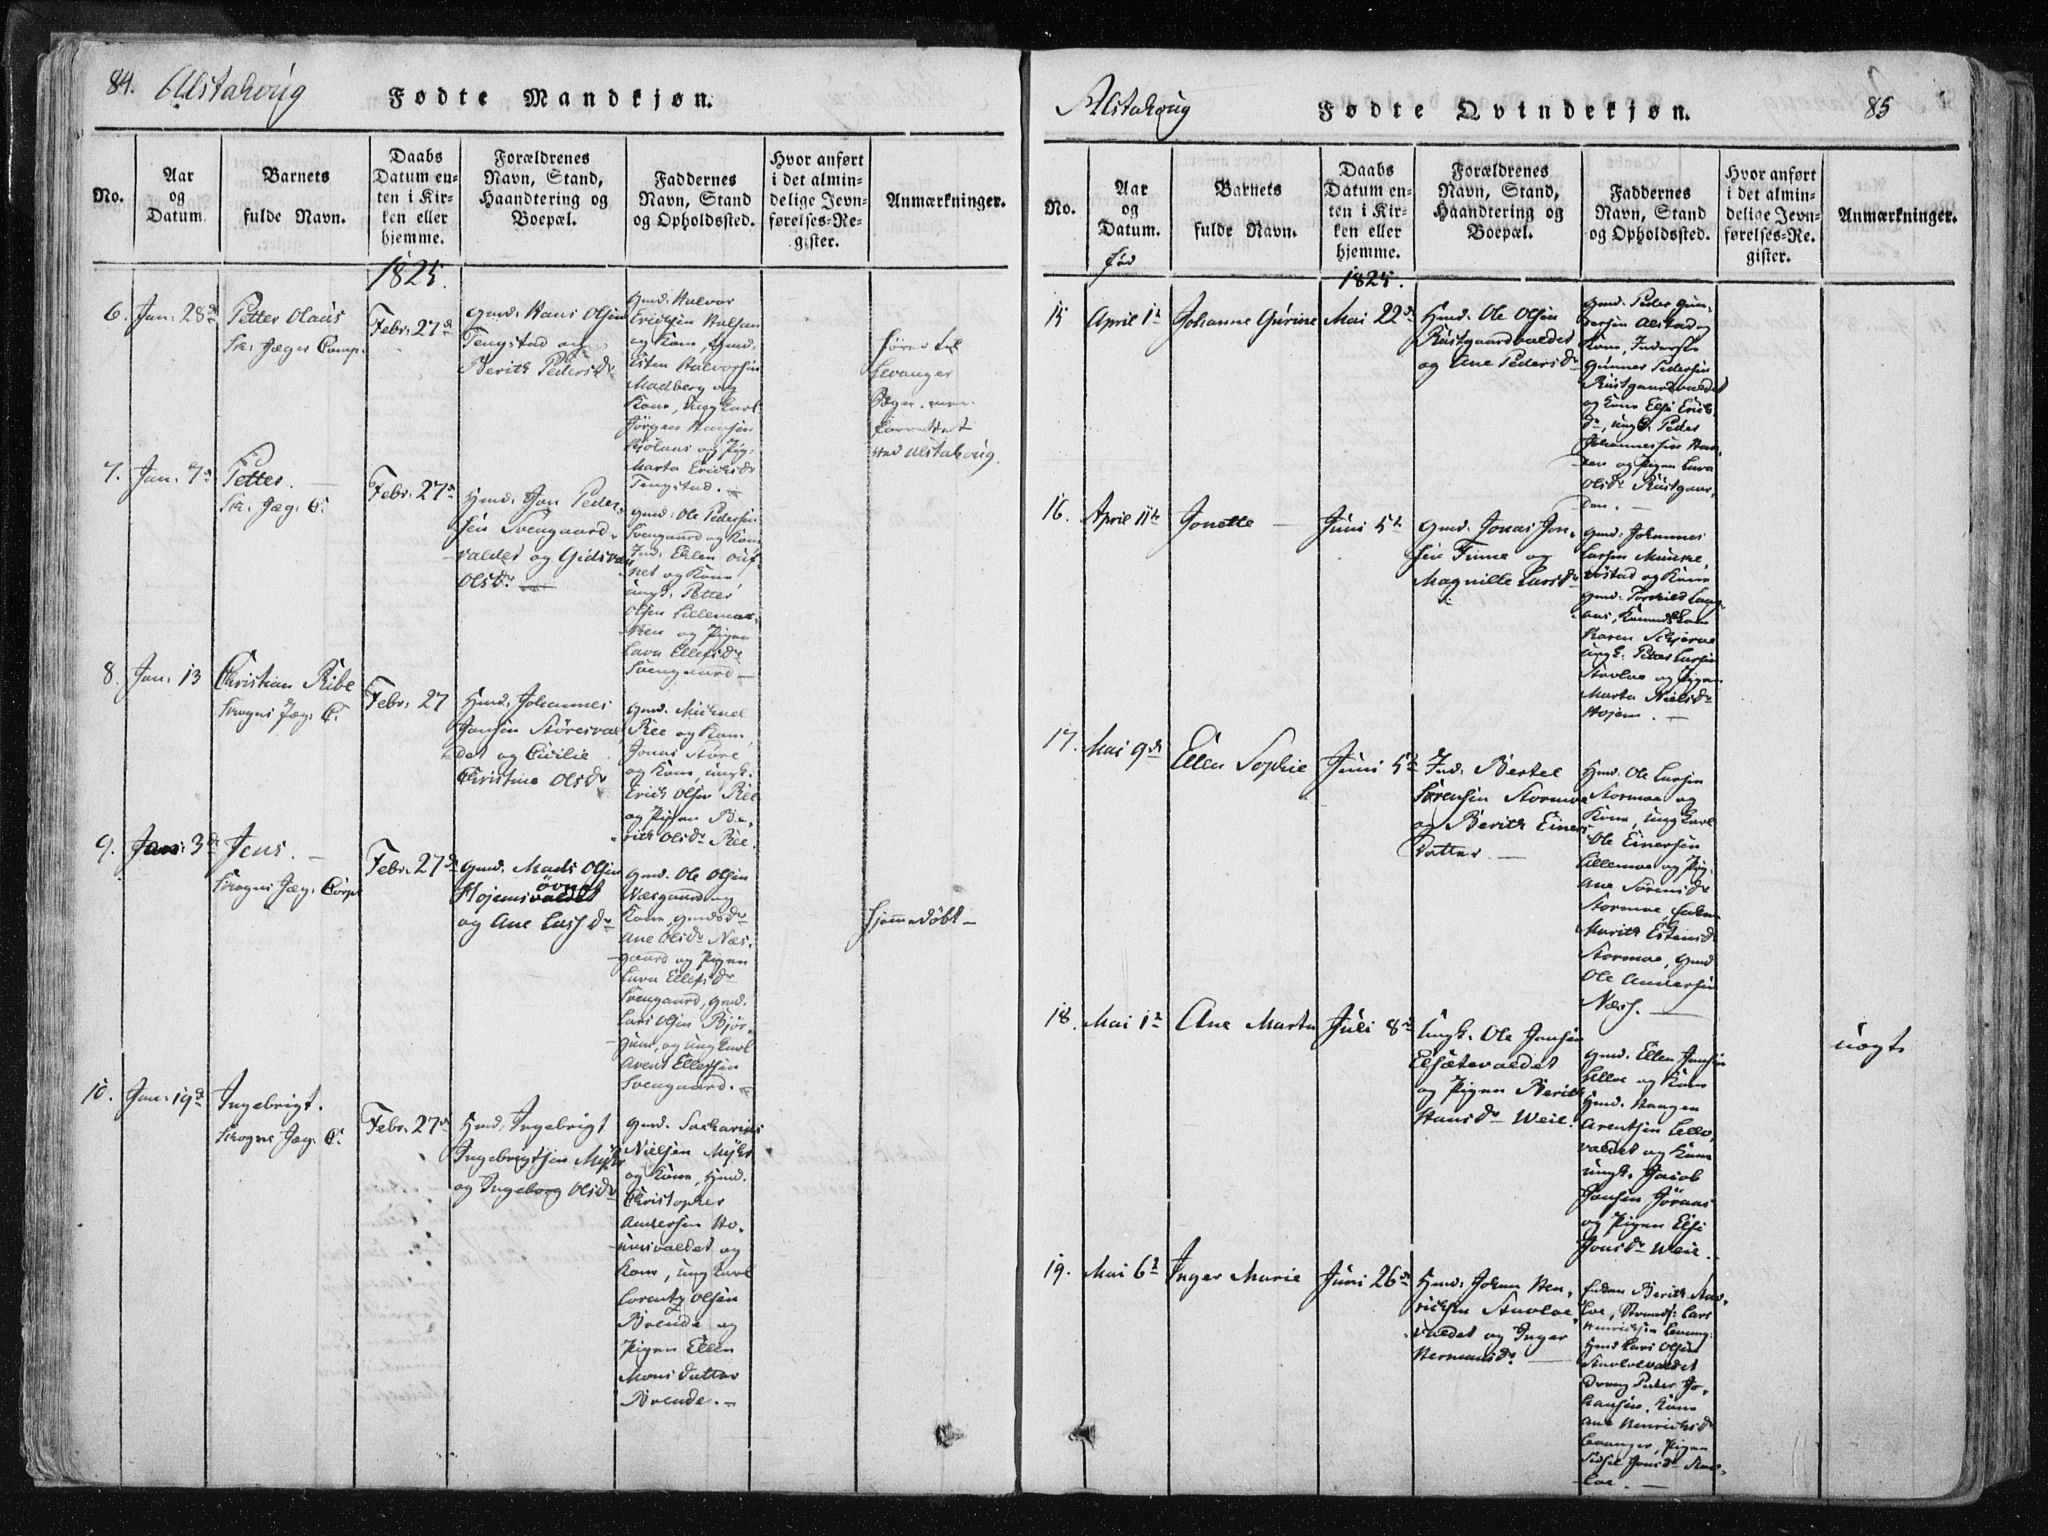 84. Alstahoug
Fødte Mandkjøn.
No.
Aar
og
Datum.
Barnets
fulde Navn.
Daabs
Datum en-
ten i Kir-
ken eller
hjemme.
Forældrenes
Navn, Stand,
Haandtering og
Boepæl.
Faddernes
Navn, Stand
og Opholdssted.
Hvor anført
i det almin-
delige Jevn-
førelses-Re-
gister.
Anmærkninger.
1825.
6. Jan: 28de
Petter Olaus
Sk: Jæger Comp.
Febr. 27de
Gmd: Hans Olsen
Tengstad og
Berith Pedersdr
Gmd: Halvor
Erichsen Halsan
og Kone, Gmd.
Esten Halvorsen
Madberg og
Kone, Ung Karl
Jørgen Hansen
og Pig:
Marta Erichsdr
Tengstad.
hører til
Levanger
Sogn, men
forrettet
ved Alstahoug.
7. Jan. 7de
Petter.
Sk. Jæg. C.
Febr. 27de
Hmd. Jon Peder-
sen Svengaard-
valdet og
Olsdr
Gmd: Ole Pedersen
Svengaard og Kone
Ind. Ellen
og Kone,
Ungk. Petter
Olsen Lillemar-
ken og Pigen
Lava Ellefsdr
Svengaard
8. Jan. 13
Christian Ribe
Skogns Jæg. C.
Febr. 27
Hmd. Johannes
Jansen Støresval
det og Cicilie
Christine Olsdr
Gmd. Michael
Ree og Kone,
Jonas Støre
og Kone, Ungk.
Erich Olsen Ree
og Pigen Be-
rith Olsdr Ree.
9. Jan: 3de
Jens.
Skogns Jæg. Corps
Febr. 27de
Gmd. Mads Olsen
Hojem øvre
og Ane Larsdr
Gmd. Ole Olsen
Næsgaard og
Kone, Gmdsdr
Ane Olsdr Næs-
gaard og Pigen
Lava Ellefsdr
Svengaard, Gmd.
Lars Olsen Bjør-
gum, og Ung Karl
Arent Ellefsen
Svengaard.
hjemmedøbt
10. Jan. 19de
Ingebrigt.
Skogns Jæg. C.
Febr. 27de
Hmd. Ingebrigt
Ingebrigtsen Mykl
og Ingeborg Olsdr
Gmd. Zacharias
Nielsen Mykl
og Kone, Hmd.
Christopher
Andersen Ho-
og
Kone, Ung Karl
Lorentz Olsen
Brende og
Pigen Ellen
Monsdatter
Brende.
Alstahoug
Fødte Qvindekjøn.
85
No.
Aar
og
Datum.
Barnets
fulde Navn.
Daabs
Datum en-
ten i Kir-
ken eller
hjemme.
Forældrenes
Navn, Stand,
Haandtering og
Boepæl.
Faddernes
Navn, Stand
og Opholdssted.
Hvor anført
i det almin-
delige Jevn-
førelses-Re-
gister.
Anmærkninger.
fød
1825.
15 April 1te
Johanne Gurine
Mai 22de
Hmd. Ole Olsen
Rustgaardvaldet
og Ane Pedersdr
Gmd: Peder Gun-
dersen Alstad og
Kone, Inderste
Gunner Pedersen
Rustgaardvaldet
og Kone Else Erichs
dr, Ungk. Peder
Johannessen
og Pigen Lava
Olsdr Rustgaar-
den.
16. April 11te
Jonette
Juni 5te
Gmd. Jonas Jon-
sen Finne og
Magnille Larsdr
Gmd: Johannes
Larsen Munke-
røstad og Kone
Gmd: Torkild
Karen Schjerve
Ungk. Petter Larsen
Stavloe og Pigen
Marta Nielsdr
Hojem.
17. Mai 9de
Ellen Sophie
Juni 5te
Ind. Bertel
Sørensen Stormoe
og Berith Einers
datter.
Hmd. Ole Larsen
Stormoe og
Kone, Ung Karl
Ole Einersen
Lillemoe og Pig.
Ane Sørensdr
Stormoe, Enken
Marith Estensdr
Stormoe, Gmd
Ole Andersen
Næss.
18. Mai 1te
Ane Marta
Juli 8de
Ungk. Ole Jansen
Elsætevaldet
og Pigen Berith
Hansdr Weie.
Gmd. Ellen Jansen
Lilloe og Kone
Hmd. Haagen
Arentsen Lillo-
valdet og Kone
Ungk. Jacob
Jansen
og Pigen Else
Jonsdr Weie.
uægte
19. Mai 6te
Inger Marie
Juni 26de
Hmd. Johan Hen-
richsen Stavloe-
valdet og Inger
Hermansdr
Enken Berith Stav-
loe, Strands: Lars
Henrichsen Levang:
Hmd Lars Olsen
Stavloevaldet
Dreng Peder Jo-
hansen, Kone
Ane Henrichsdr
Levanger, Pigen
Sidsel Jonsdr Stav-
loe.